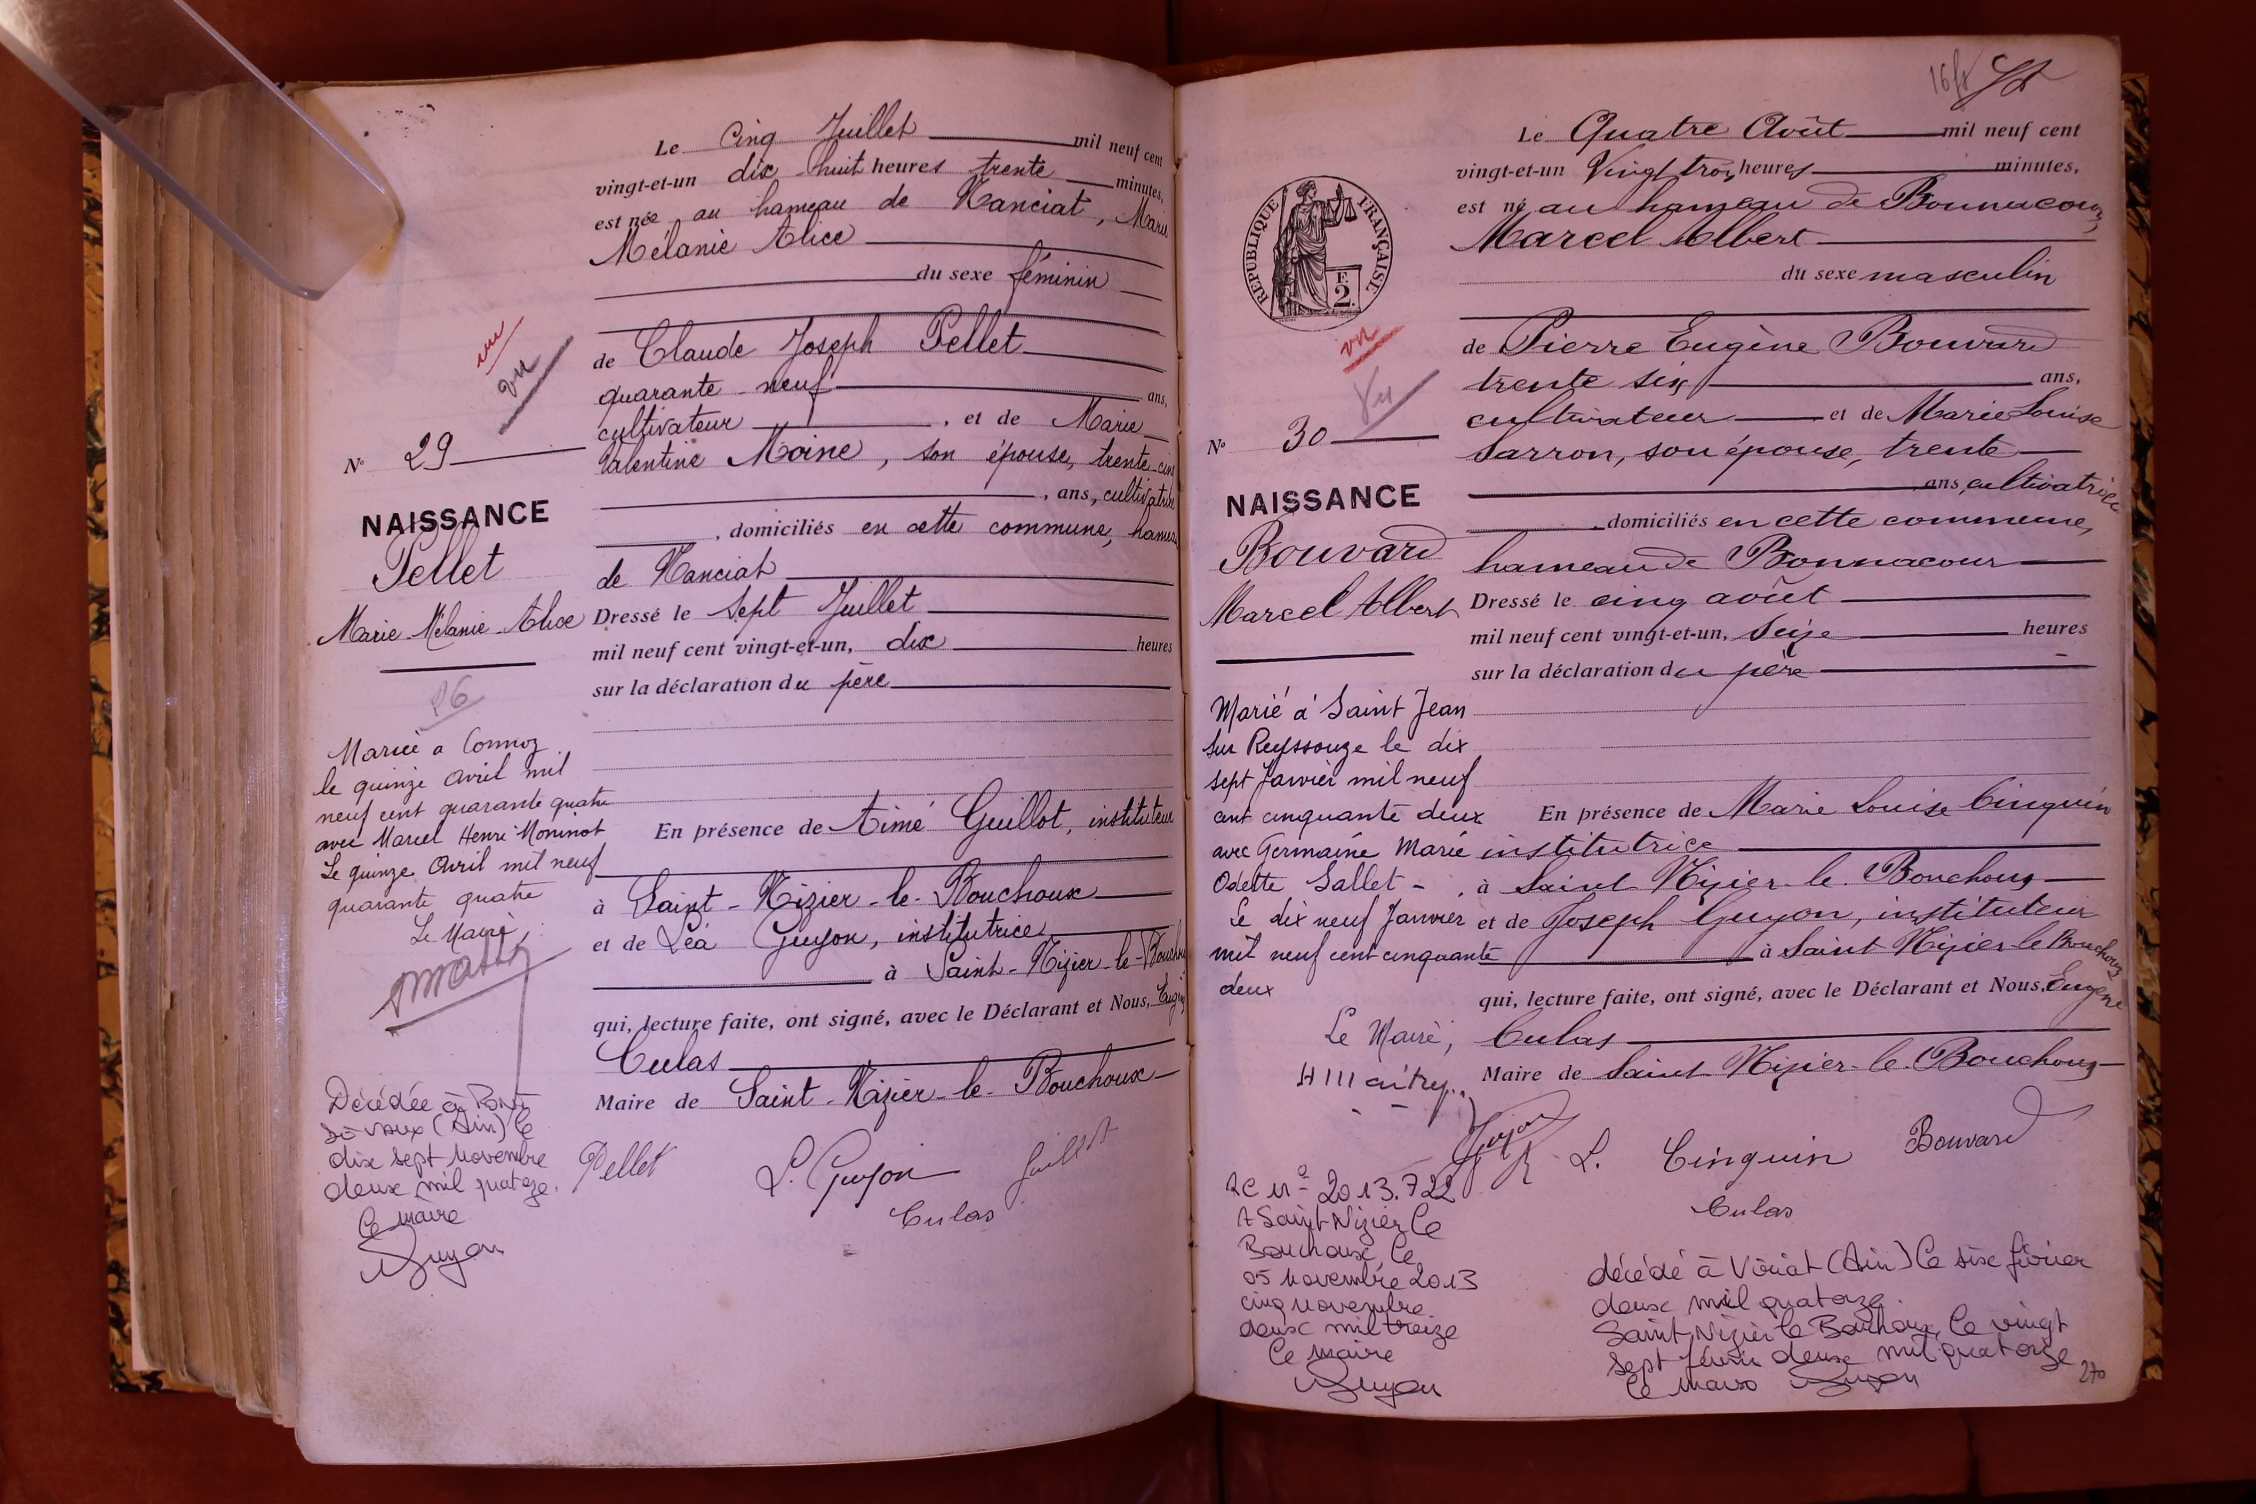 Le Cinq Juillet mil neuf cent
vingt-et-un dix-huit heures trente minutes,
est née au hameau de Nanciat, Marie
Mélanie Alice
du sexe féminin
de Claude Joseph Pellet
quarante-neuf ans,
cultivateur, et de Marie
Valentine Moine, son épouse, trente-cinq
, ans, cultivatrice
, domiciliés en cette commune, hameau
de Nanciat
Dressé le Sept Juillet
mil neuf cent vingt-et-un, dix heures
sur la déclaration du père
En présence de Aimé Guillot, instituteur
à Saint-Nizier-le-Bouchoux
et de Léa Guyon, institutrice
à Saint-Nizier-le-Bouchoux
qui, lecture faite, ont signé, avec le Déclarant et Nous, Eugène
Culas
Maire de Saint-Nizier-le-Bouchoux
Pellet L. Guyon Guillot
Culas
vu
vu
No 29
NAISSANCE
Pellet
Marie-Mélanie-Alice
26
Mariée à Cormoz
le quinze avril mil
neuf cent quarante quatre
avec Marcel Henri Moninot
Le quinze Avril mil neuf
quarante quatre
Le Maire,
Décédée à Pont
de Vaux (Ain) le
dix sept novembre
deux mil quatorze.
Le maire
Guyon
16 fr
Le Quatre Août mil neuf cent
vingt-et-un Vingt trois heures minutes,
est né au hameau de Bonnacour,
Marcel Albert
du sexe masculin
de Pierre Eugène Bouvard
trente six ans,
cultivateur et de Marie Louise
Sarron, son épouse, trente
ans, cultivatrice
, domiciliés en cette commune,
hameau de Bonnacour
Dressé le cinq août
mil neuf cent vingt-et-un, Seize heures
sur la déclaration du père
En présence de Marie Louise Cinquin
institutrice
à Saint Nizier-le-Bouchoux
et de Joseph Guyon, instituteur
à Saint Nizier-le Bouchoux
qui, lecture faite, ont signé, avec le Déclarant et Nous, Eugène
Culas
Maire de Saint Nizier-le-Bouchoux
Guyon L. Cinquin Bouvard
Culas
RÉPUBLIQUE FRANÇAISE
F.
2
vu
Vu
No 30
NAISSANCE
Bouvard
Marcel Albert
Marié à Saint Jean
sur Reyssouze le dix
sept Janvier mil neuf
cent cinquante deux
avec Germaine Marie
Odette Sallet -
Le dix neuf Janvier
mil neuf cent cinquante
deux
Le Maire,
RC no 2013.722
A Saint Nizier le
Bouchoux, le
05 novembre 2013
cinq novembre
deux mil treize
Le maire
Guyon
décédé à Viriat (Ain) le six février
deux mil quatorze.
Saint Nizier le Bouchoux, le vingt
sept février deux mil quatorze
Le maire Guyon
270